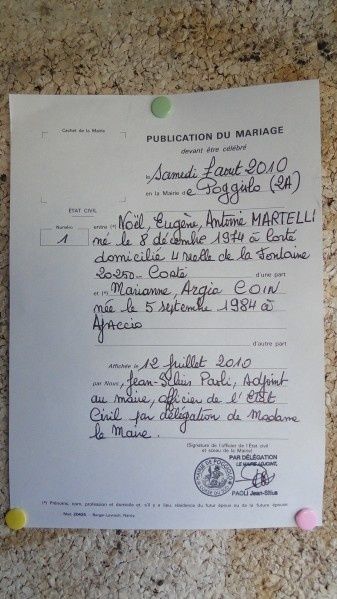 Cachet de la Mairie
PUBLICATION DU MARIAGE
devant être célébré
le Samedi 7 août 2010
en la Mairie de Poggiolo (2A)
ÉTAT CIVIL
Numéro
1
entre (*) Noël, Eugène, Antoine MARTELLI
né le 8 décembre 1974 à Corté
domicilié 4 ruelle de la Fontaine
20250 - Corté
d'une part
et (*) Marianne, Argia COIN
née le 5 septembre 1984 à
Ajaccio
d'autre part
Affichée le 12 juillet 2010
par Nous, Jean-Silius Paoli, Adjoint
au maire, officier de l'Etat
Civil par délégation de Madame
le Maire.
(Signature de l'officier de l'État civil
et sceau de la Mairie)
PAR DÉLÉGATION
LE MAIRE ADJOINT,
PAOLI Jean-Silius
(*) Prénoms, nom, profession et domicile et, s'il y a lieu, résidence du futur époux ou de la future épouse.
Berger-Levrault, Nancy